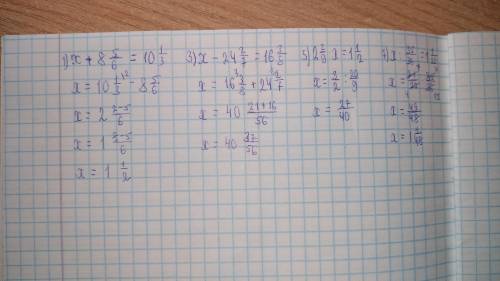 1) x + 8 5/6 = 10 1/3
x = 10 1/3 \2 - 8 5/6
x = 2 2-5/6
x = 1 8-5/6
x = 1 1/2
3) x - 24 2/7 = 16 3/8
x = 16 3/8 + 24 2/7
x = 40 21+16/56
x = 40 37/56
5) 2 2/9 x = 1 1/2
x = 3/2 : 20/9
x = 27/40
x = 49/48
x = 1 1/48